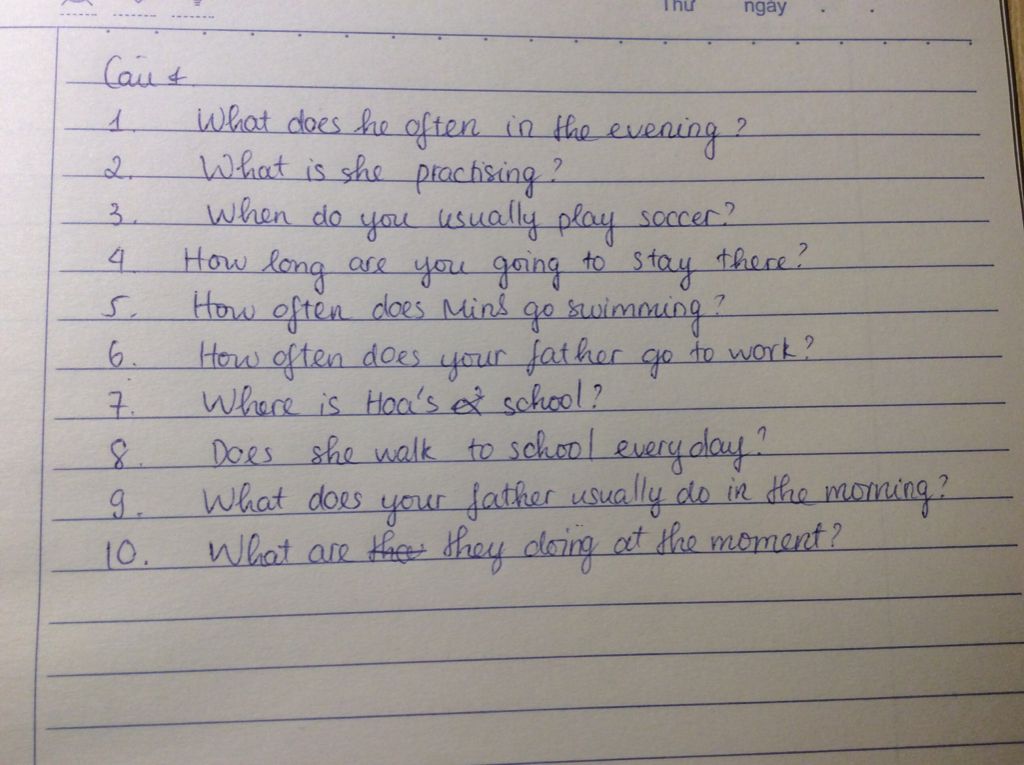 Thứ ngày . .
Câu 1
1. What does he often in the evening ?
2. What is she practising ?
3. When do you usually play soccer ?
4 How long are you going to stay there ?
5. How often does Minh go swimming ?
6. How often does your father go to work ?
7. Where is Hoa's school ?
8. Does she walk to school everyday ?
9. What does your father usually do in the morning ?
10. What are they doing at the moment ?